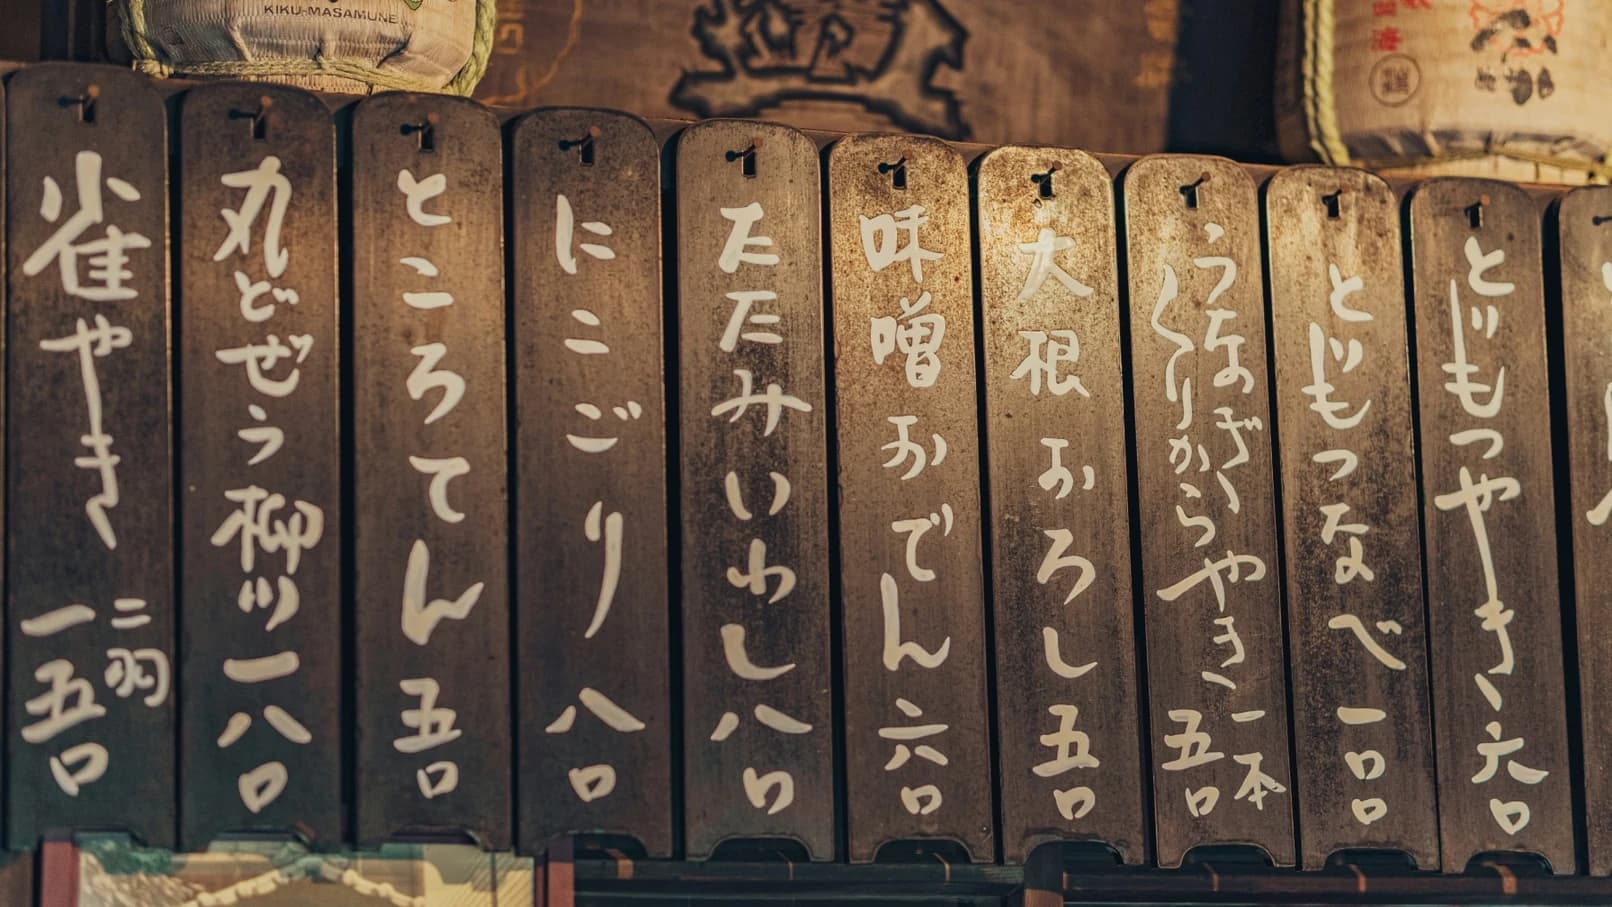 KIKU-MASAMUNE
とりもつやき、六〇
とりもつなべ一〇〇
うなぎ、
くりからやき、
一本
五〇
大根おろし五〇
味噌おでん六〇
たたみいわし八〇
にこごり八〇
ところてん五〇
丸どぜう柳川一八〇
雀やき
二羽
一五〇